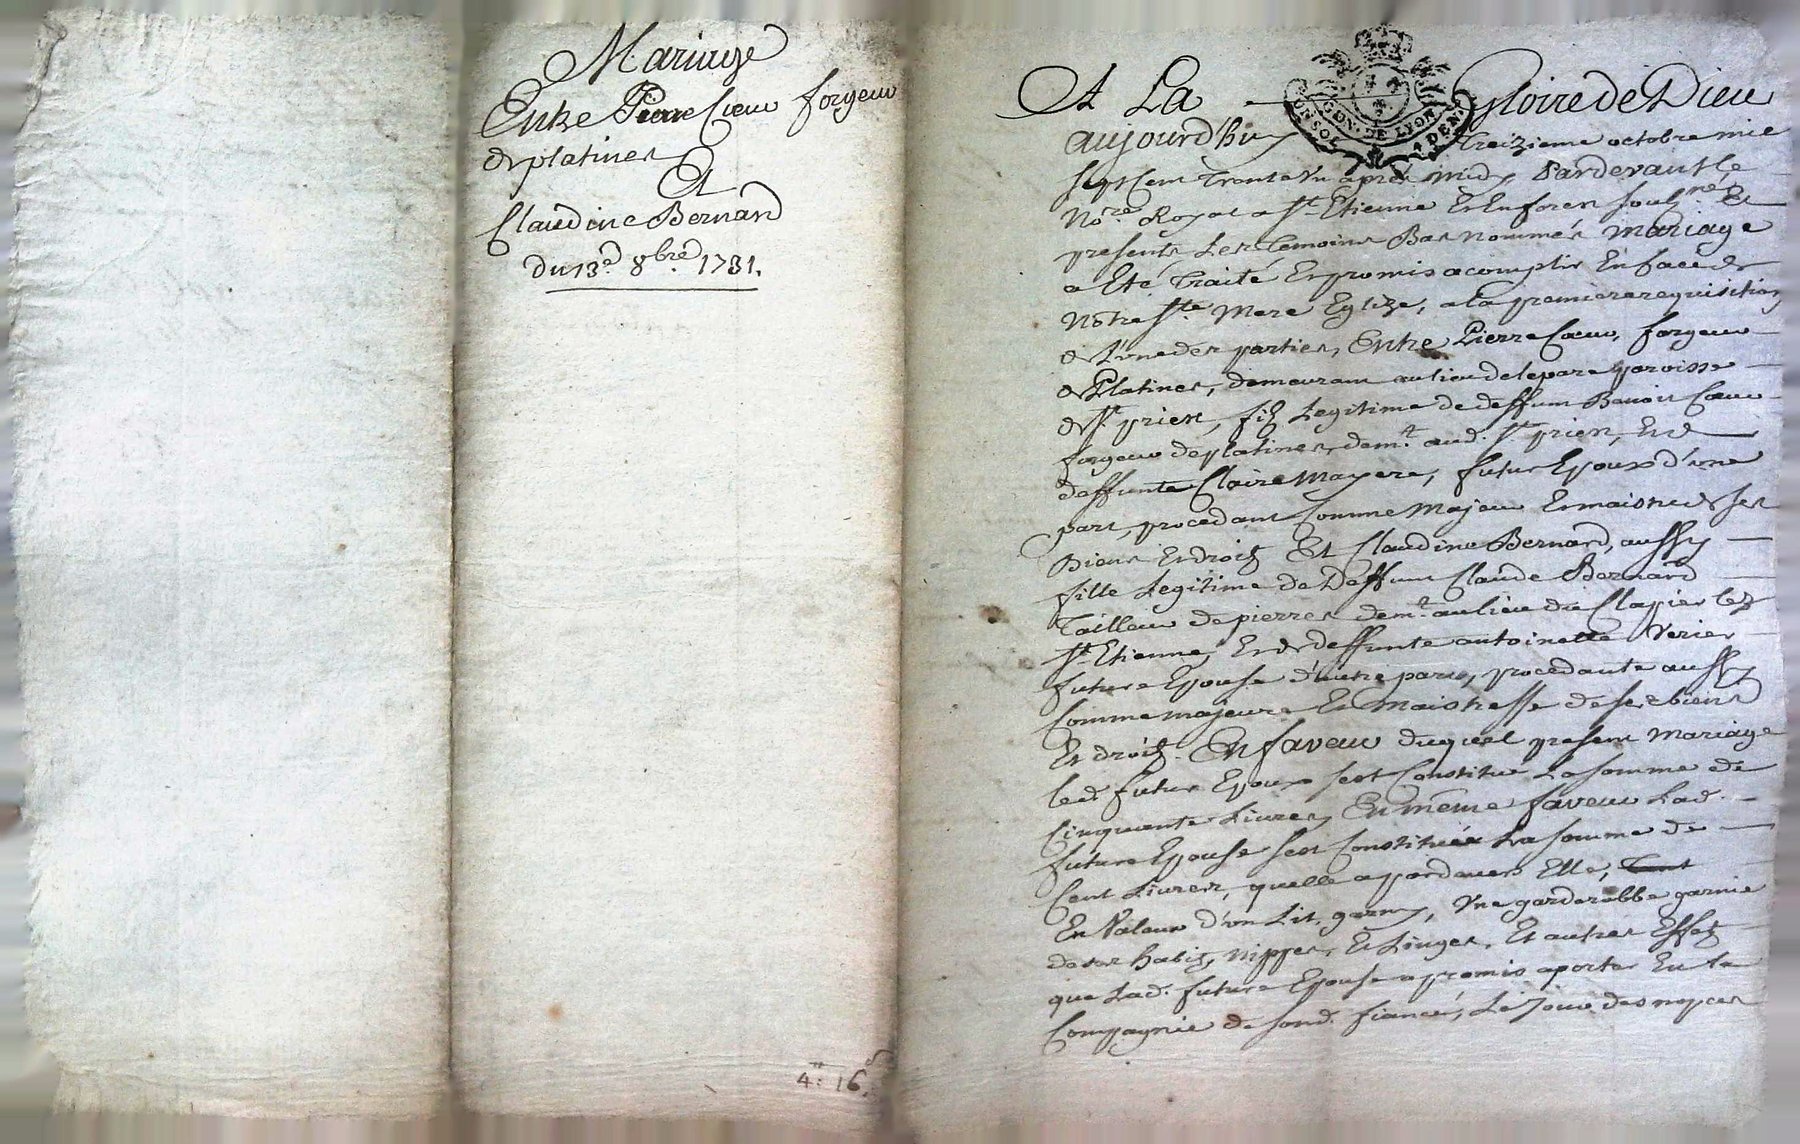 Mariage
Entre Pierre Coeur forgeur
de platines
Et
Claudine Bernard
du 13e. 8bre. 1731.
4: 16s
A La Gloire de Dieu
GON. DE LYON
aujourd'huy treizieme octobre mil
sept cent trente un apres midy, Pardevant le
Nore. Royal a St. Etienne En Foren soubne. Et
presents Les temoins Bas nommés mariage
a Eté traité Et promis acomplir En face de
Notre Ste. Mere Eglize, a la premiere requisition
de L'une des parties, Entre Pierre Coeur, forgeur
de Platines, demeurant au lieu de parroisse
de St. priest, fils Legitime de deffunt Benoit Coeur
forgeur de platines demt. aud. St. priest, Et de
deffunte Claire Mayere, futur Epoux d'une
part, procedant Comme Majeur Et maistre de ses
Biens Et droits Et Claudine Bernard, aussy
fille Legitime de Deffunt Claude Bernard
Tailleur de pierres demt. au lieu du Clapier lez
St. Etienne, Et de deffunte antoinette Verier
future Epouse d'autre part, procedante aussy
Comme majeure Et Maistresse de ses biens
Et droits. En faveur duquel present mariage
led. futur Epoux s'est Constitué La somme de
Cinquante Livres, En même faveur Lad.
future Epouse s'est Constituée La somme de
Cent Livres, quelle a pardevers Elle,
En Valeur d'un Lit garny, Une garderobbe garnie
de ses habits, nippes, Et Linges, Et autres Effets
que Lad. future Epouse a promis aporter En la
Compagnie de sond. fiancé, Le Jour des nopces